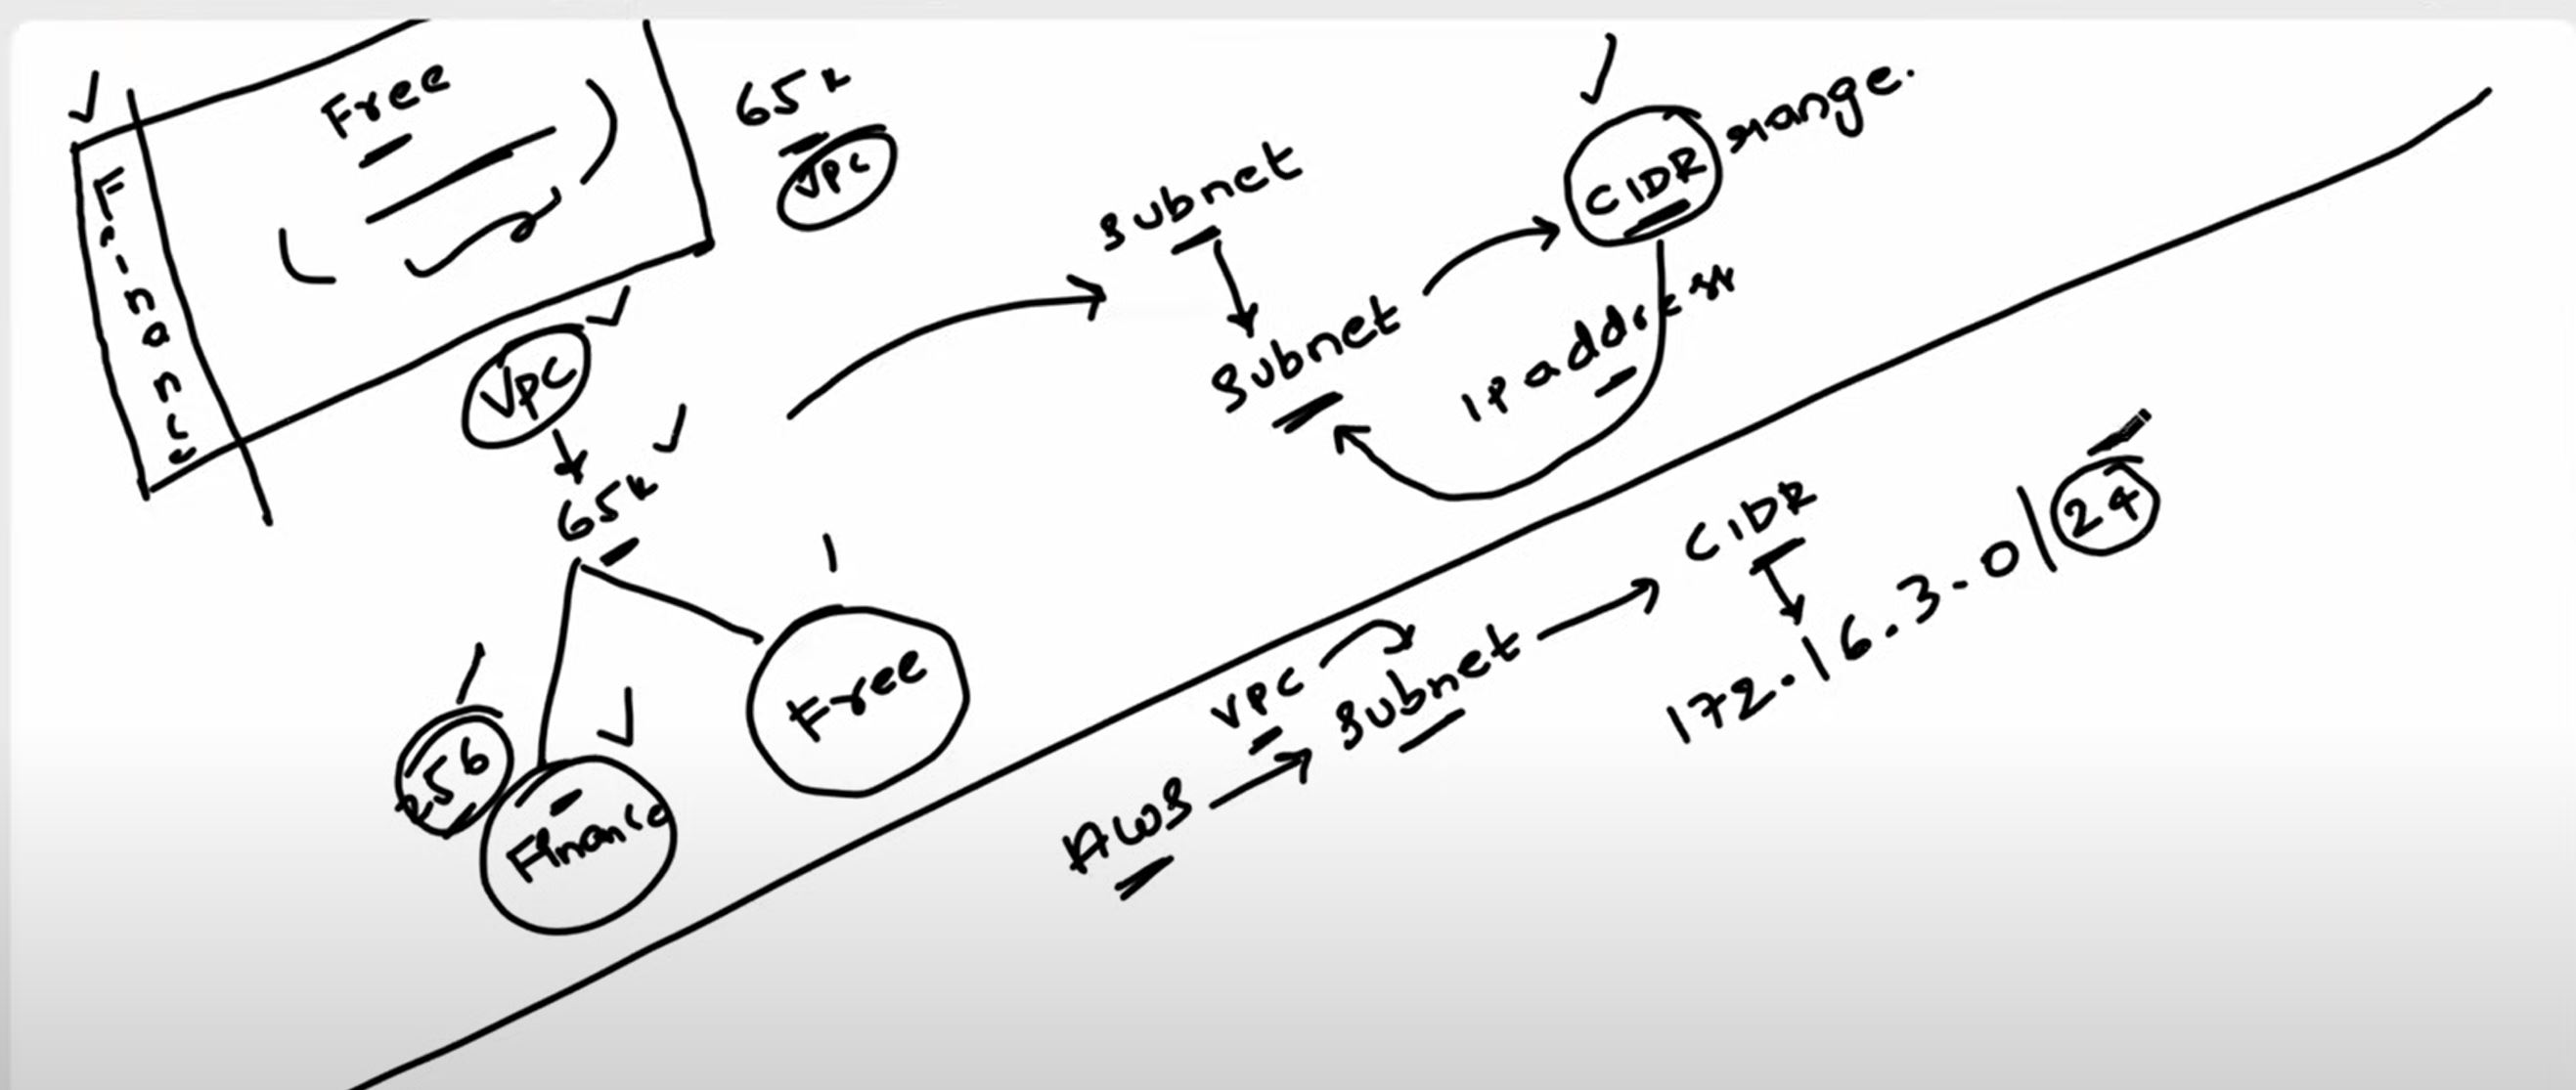 Free
Finance
65k
VPC
VPC
65k
256
Finance
Free
Subnet
Subnet
CIDR range.
IP address
AWS
VPC
Subnet
CIDR
172.16.3.0/24